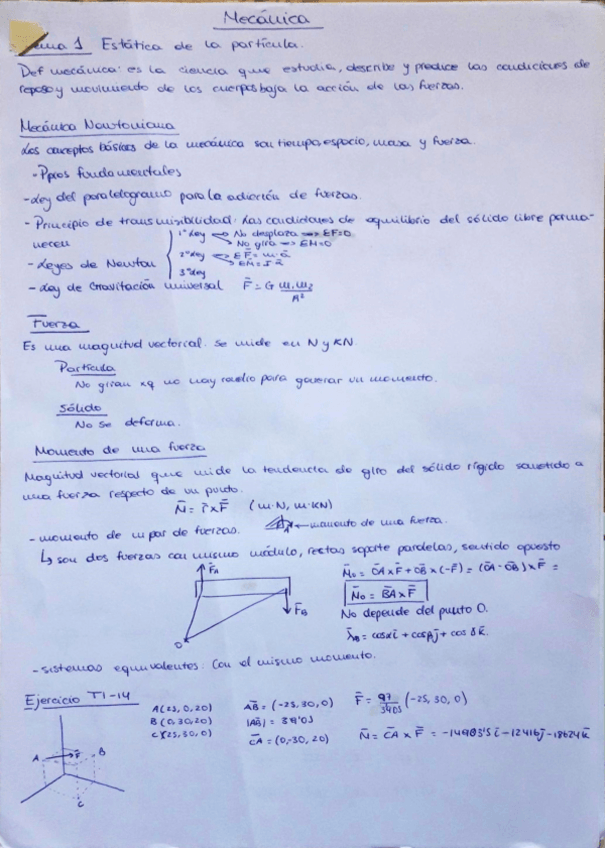 Mecánica
Tema 1 Estática de la partícula.
Def mecánica: es la ciencia que estudia, describe y predice las condiciones de
reposo y movimiento de los cuerpos bajo la acción de las fuerzas.
Mecánica Newtoniana
Los conceptos básicos de la mecánica son tiempo, espacio, masa y fuerza.
- Ppios fundamentales
- Ley del paralelogramo para la adición de fuerzas.
- Principio de transmisibilidad: Las condiciones de equilibrio del sólido libre perma-
necen
- Leyes de Newton
1ª Ley No desplaza => ΣF=0
No gira => ΣM=0
2ª Ley ΣF̄ = m·ā
ΣM = I ᾱ
3ª Ley
- Ley de Gravitación universal F̄ = G m₁m₂/r²
Fuerza
Es una magnitud vectorial. Se mide en N y KN.
Partícula
No giran xq no hay radio para generar un momento.
Sólido
No se deforma.
Momento de una fuerza
Magnitud vectorial que mide la tendencia de giro del sólido rígido sometido a
una fuerza respecto de un punto.
M̄ = r̄ x F̄ (m·N, m·KN)
- momento de un par de fuerzas. A momento de una fuerza.
↳ son dos fuerzas con mismo módulo, rectas soporte paralelas, sentido opuesto
F̄A
F̄B
O
M̄o = ŌĀ x F̄ + ŌB̄ x (-F̄) = (ŌĀ - ŌB̄) x F̄ =
M̄o = B̄Ā x F̄
No depende del punto O.
= cosα ī + cosβ j̄ + cosγ k̄.
- sistemas equivalentes: Con el mismo momento.
Ejercicio T1-14
A(25, 0, 20) ĀB̄ = (-25, 30, 0) F̄ = 97/39'05 (-25, 30, 0)
B(0, 30, 20) |ĀB̄| = 39'05
C(25, 30, 0) C̄Ā = (0, -30, 20) M̄ = C̄Ā x F̄ = -1490'35 ī - 1241'6 j̄ - 1862'4 k̄
A F B
C